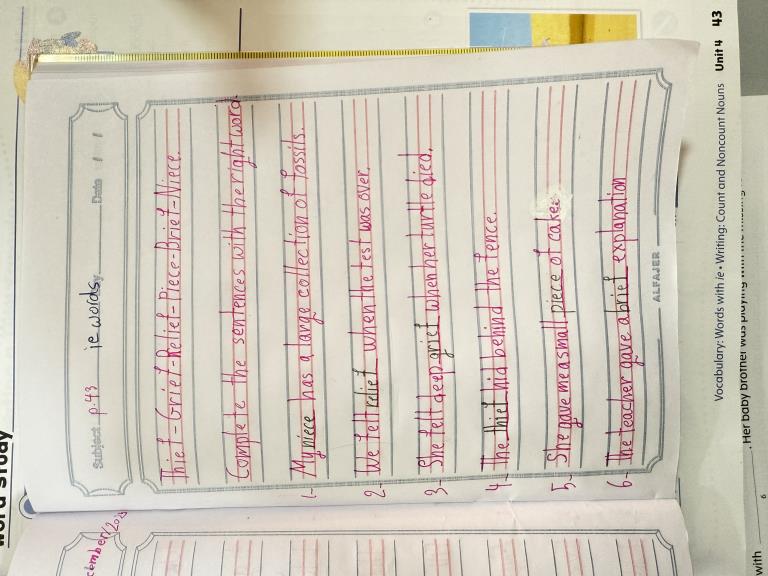 Subject p.43 ie words Date / /
Thief-Grief-Relief-Piece-Brief-Niece.
Complete the sentences with the right word.
1- My niece has a large collection of fossils.
2- We felt relief when the test was over.
3- She felt deep grief when her turtle died.
4- The thief hid behind the fence.
5- She gave me a small piece of cake.
6- The teacher gave a brief explanation
ALFAJER
Vocabulary: Words with ie • Writing: Count and Noncount Nouns Unit 4 43
. Her baby brother was playing with the
with
6